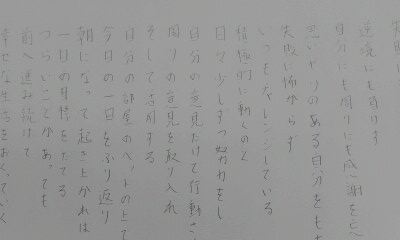 失敗し
逆境にも負けず
自分にも周りにも感謝を忘
思いやりのある自分をも
失敗に怖からず
いつもチャレンジしている
積極的に動くのと
日々少しずつ努力をし
自分の意見だけで行動さ
周りの意見を取り入れ
そして活用する
自分の部屋のベットの上で
今日の一日をふり返り
朝になって起き上がれば
一日の目標をたてる
つらいことがあっても
前へ進み続けて
幸せな生活をおくっていく